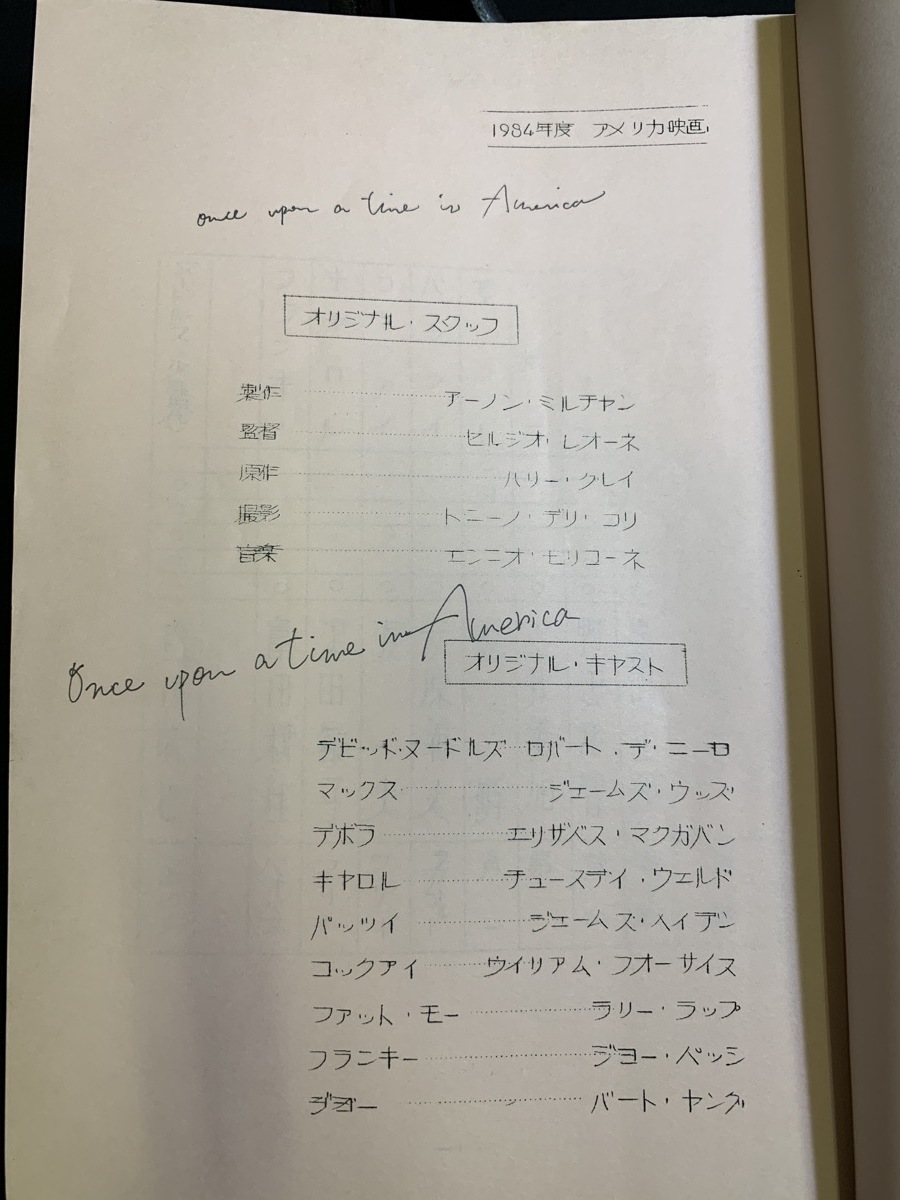 1984年度 アメリカ映画
once upon a time in America
オリジナル・スタッフ
製作 アーノン・ミルチャン
監督 セルジオ・レオーネ
原作 ハリー・グレイ
撮影 トニーノ・デリ・コリ
音楽 エンニオ・モリコーネ
Once upon a time in America
オリジナル・キャスト
デビッド・ヌードルズ ロバート・デ・ニーロ
マックス ジェームズ・ウッズ
デボラ エリザベス・マクガバン
キャロル チューズデイ・ウェルド
パッツイ ジェームズ・ヘイデン
コックアイ ウイリアム・フォーサイス
ファット・モー ラリー・ラップ
フランキー ジョー・ペッシ
ジョー バート・ヤング